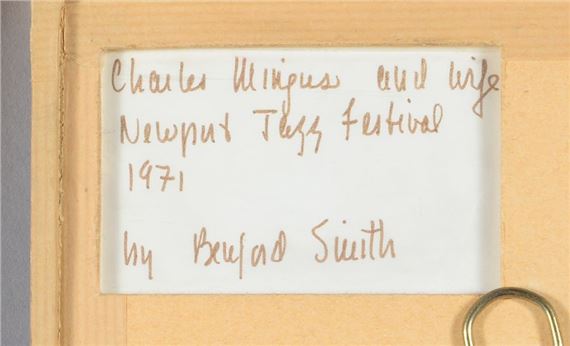 Charles Mingus and wife
Newport Jazz Festival
1971
by Beuford Smith